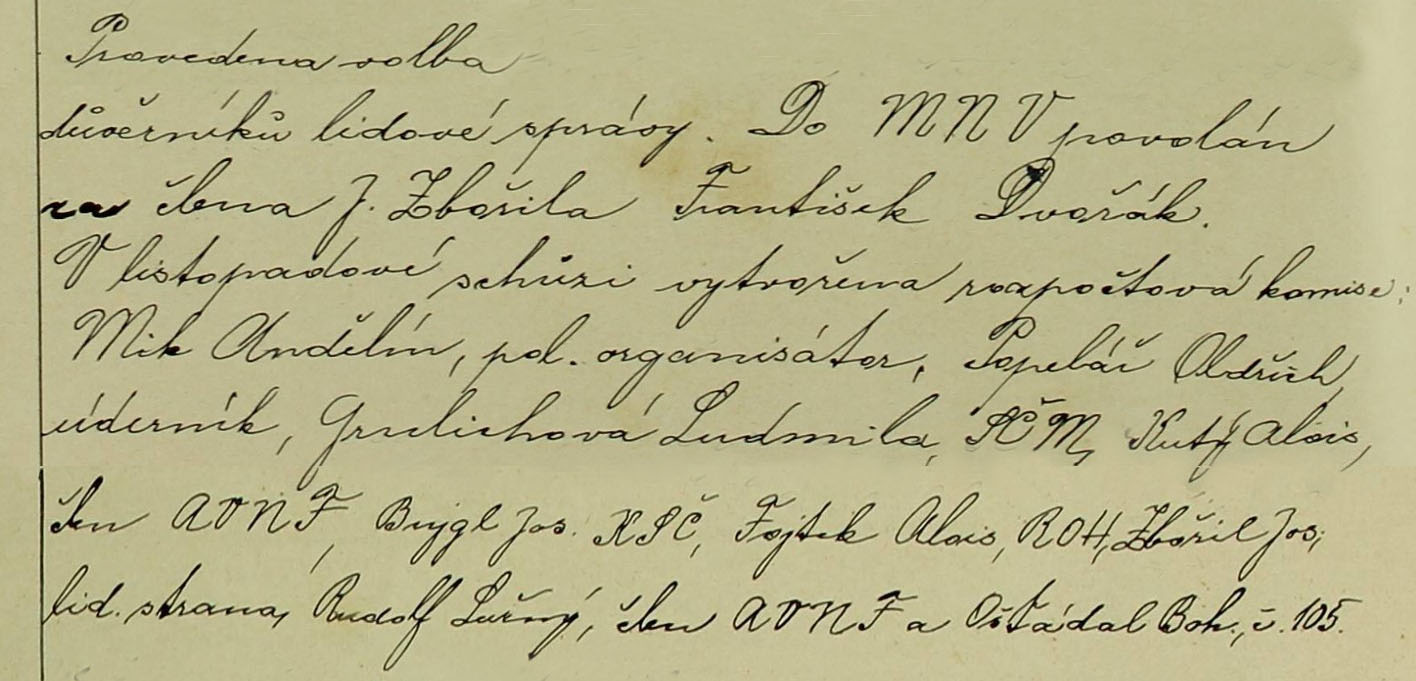 Provedena volba
důvěrníků lidové správy. Do MNV povolán
za člena J. Zbořila František Dvořák.
V listopadové schůzi vytvořena rozpočtová komise:
Mik Andělín, pol. organisátor, Popelář Oldřich,
úderník, Grulichová Ludmila, SČM, Kutý Alois,
člen AVNF, Bujgl Jos. KSČ, Fojtek Alois, ROH, Zbořil Jos,
lid. strana, Rudolf Lužný, člen AVNF a Ošťádal Boh., č. 105.